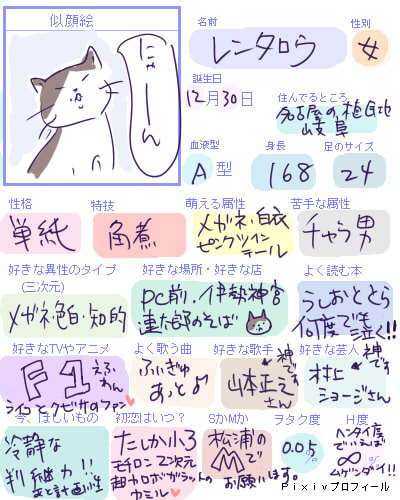 似顔絵
にゃーん
名前
レンタロウ
性別
女
誕生日
12月30日
住んでるところ
名古屋の植民地
岐阜
血液型
A型
身長
168
足のサイズ
24
性格
単純
特技
角煮
萌える属性
メガネ・白衣
ピンクツイン
テール
苦手な属性
チャラ男
好きな異性のタイプ
(三次元)
メガネ・色白・知的
好きな場所・好きな店
PC前・伊勢神宮
蓮太郎のそば
よく読む本
うしおととら
何度でも泣く!!
好きなTVやアニメ
F1
えふ
わん
ライコとクビサのファン
よく歌う曲
ふぃぎゅ
あっと♪
好きな歌手
神です
山本正之
さん
好きな芸人
神です
村上
ショージさん
今、ほしいもの
冷静な
判断力!!
あと計画性
初恋はいつ?
たしか小3
モイロン 二次元
超力ロボガラット
カミル
SかMか
松浦の
Mで
お願いします。
ヲタク度
0.05%
H度
ヘンタイ度
でいいもの
∞
ムゲンダイ!!
Pixivプロフィール